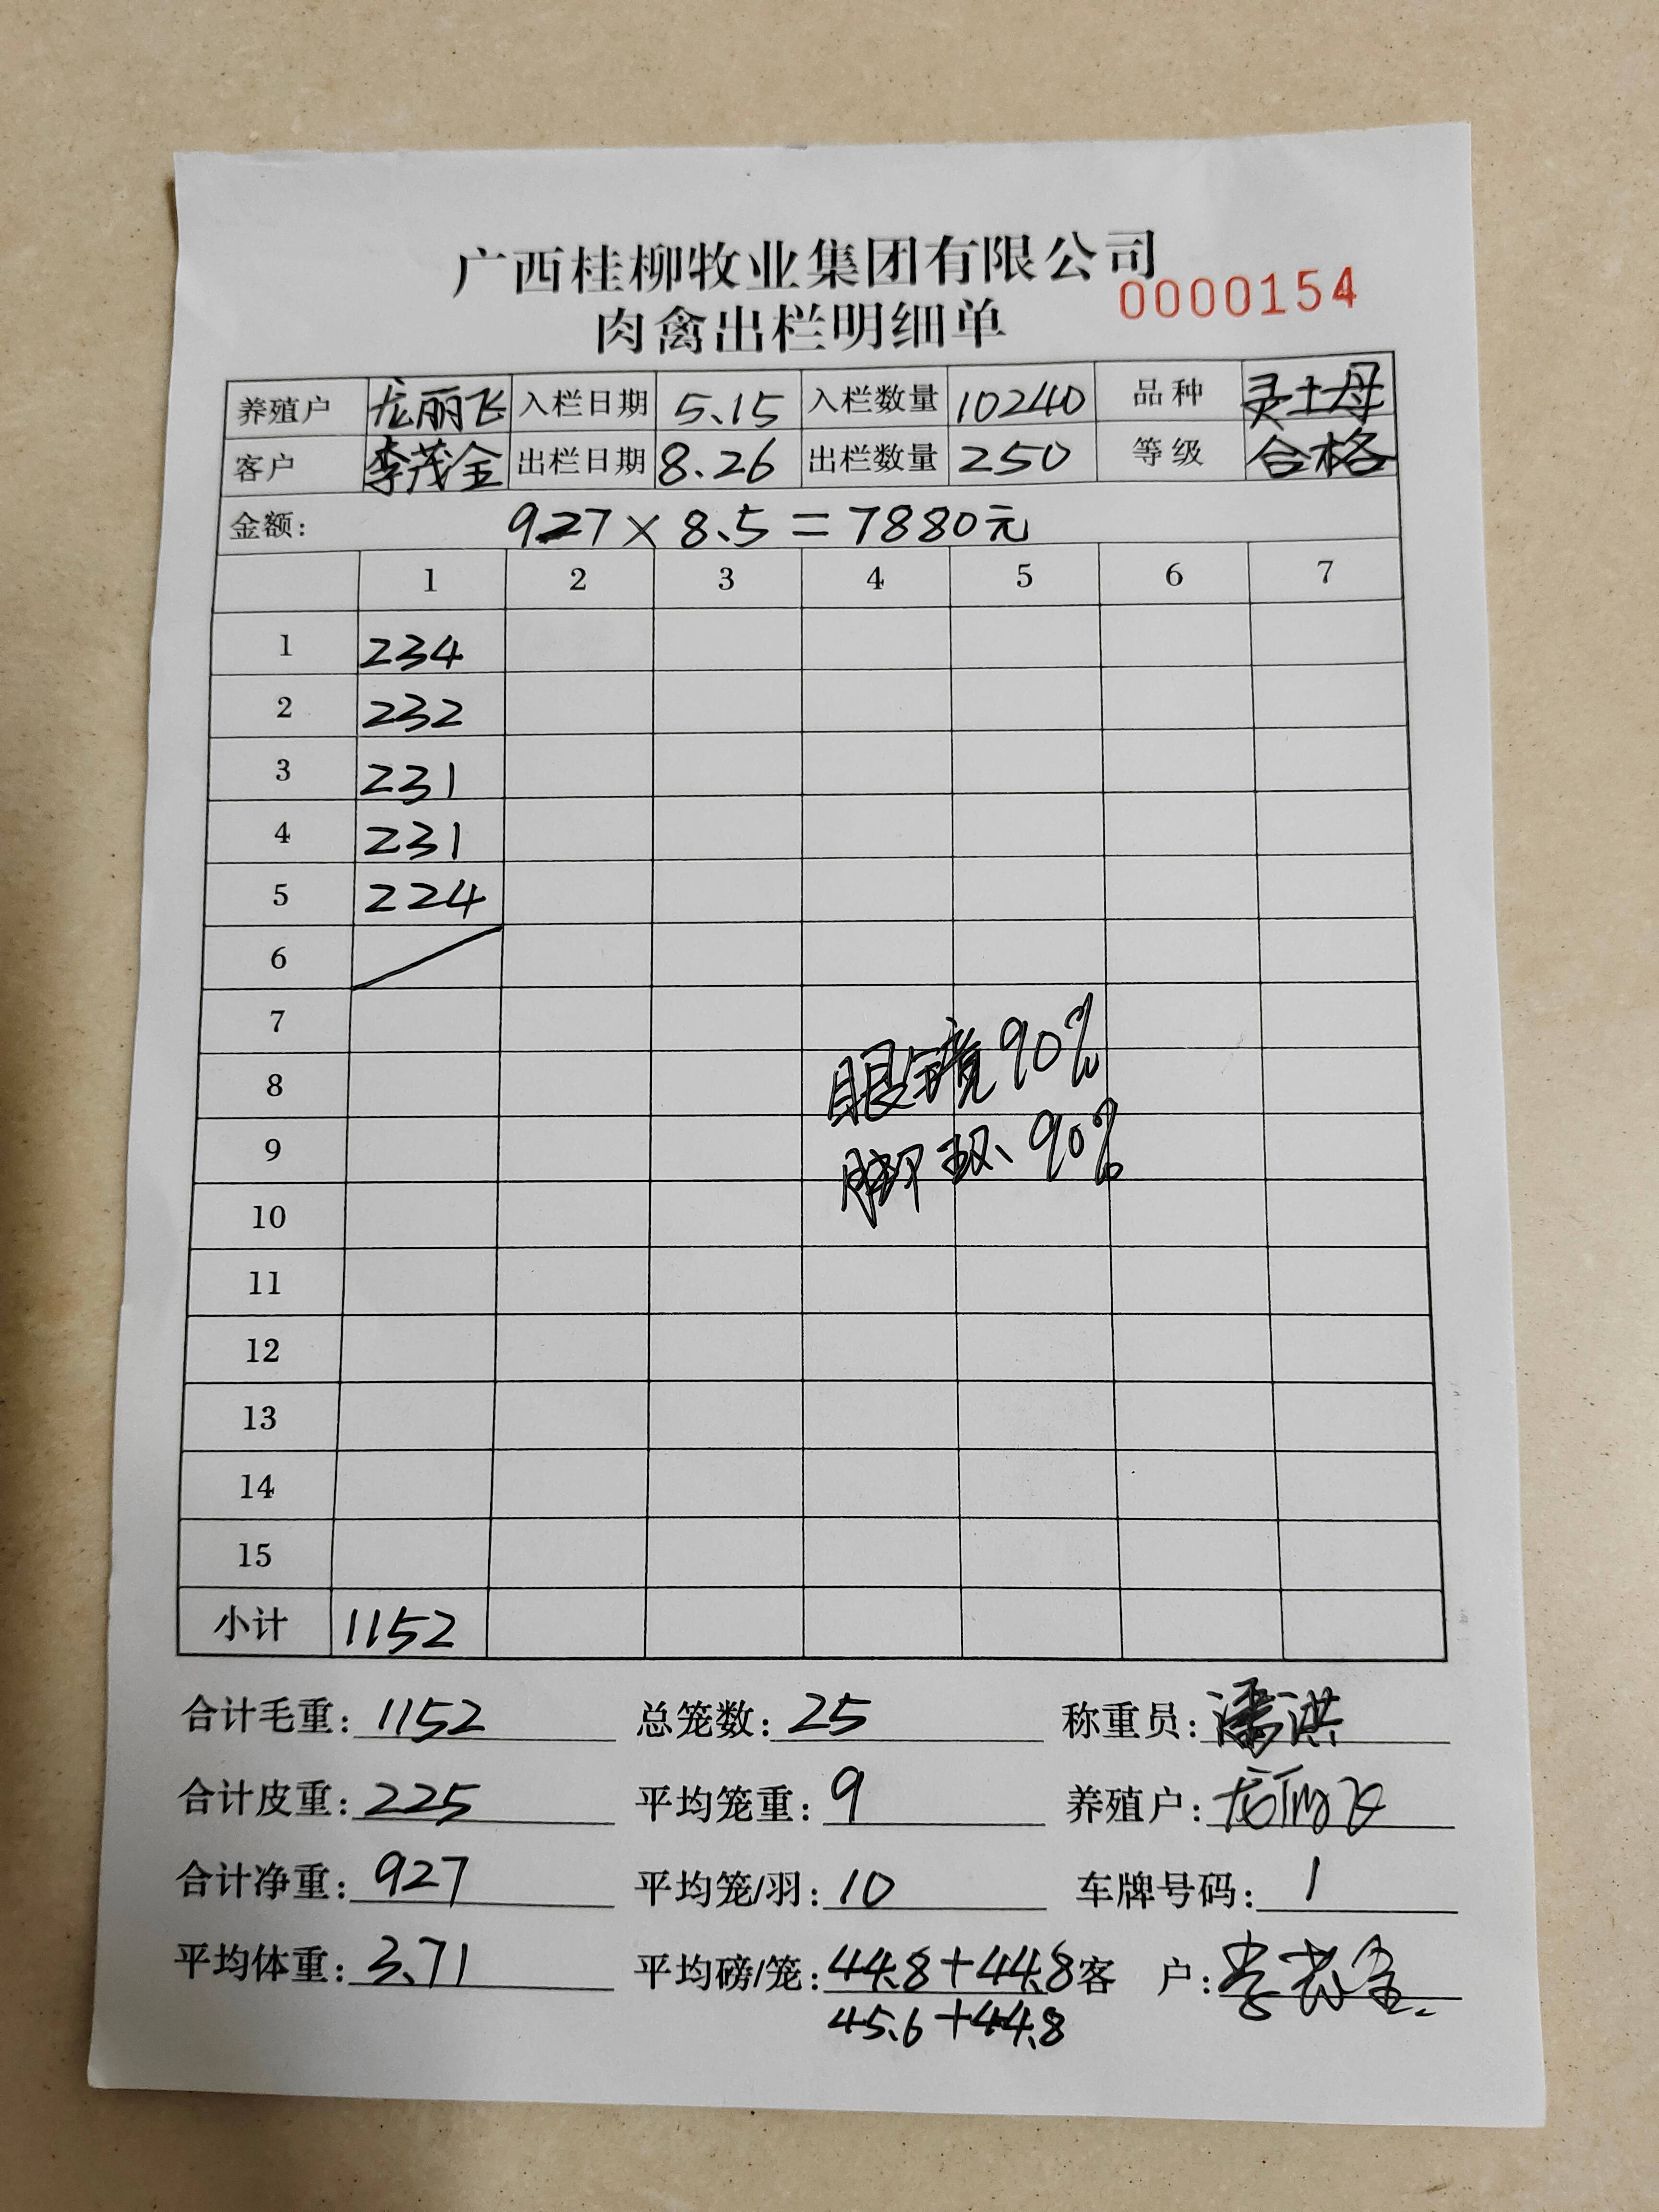 广西桂柳牧业集团有限公司
0000154
肉禽出栏明细单
养殖户 龙丽飞 入栏日期 5.15 入栏数量 10240 品种 灵土母
客户 李茂金 出栏日期 8.26 出栏数量 250 等级 合格
金额: 927×8.5=7880元
1 2 3 4 5 6 7
1 234
2 232
3 231
4 231
5 224
6
7
8 眼镜90%
9 脚环90%
10
11
12
13
14
15
小计 1152
合计毛重: 1152 总笼数: 25 称重员: 潘洪
合计皮重: 225 平均笼重: 9 养殖户: 龙丽飞
合计净重: 927 平均笼/羽: 10 车牌号码: 1
平均体重: 3.71 平均磅/笼: 44.8+44.8 客 户: 李茂金
45.6+44.8